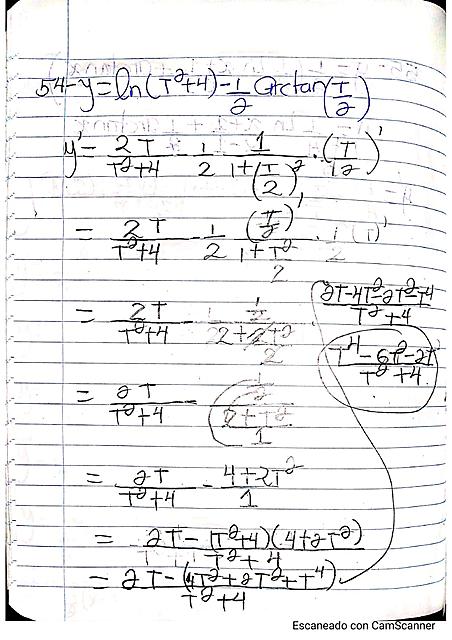 54- y = ln(T²+4) - 1/2 arctan(T/2)
y' = 2T/T²+4 - 1/2 1/1+(T/2)² · (T/2)'
= 2T/T²+4 - 1/2 (T/2)'/1+T²/2 · 1/2 (T)'
= 2T/T²+4 -
2T-4T²-2T²-T⁴/T²+4
T⁴-6T²-2T/T²+4
= 2T/T²+4 -
= 2T/T²+4 - 4+2T²/1
= 2T-(T²+4)(4+2T²)/T²+4
= 2T-(4T²+2T²+T⁴)/T²+4
Escaneado con CamScanner